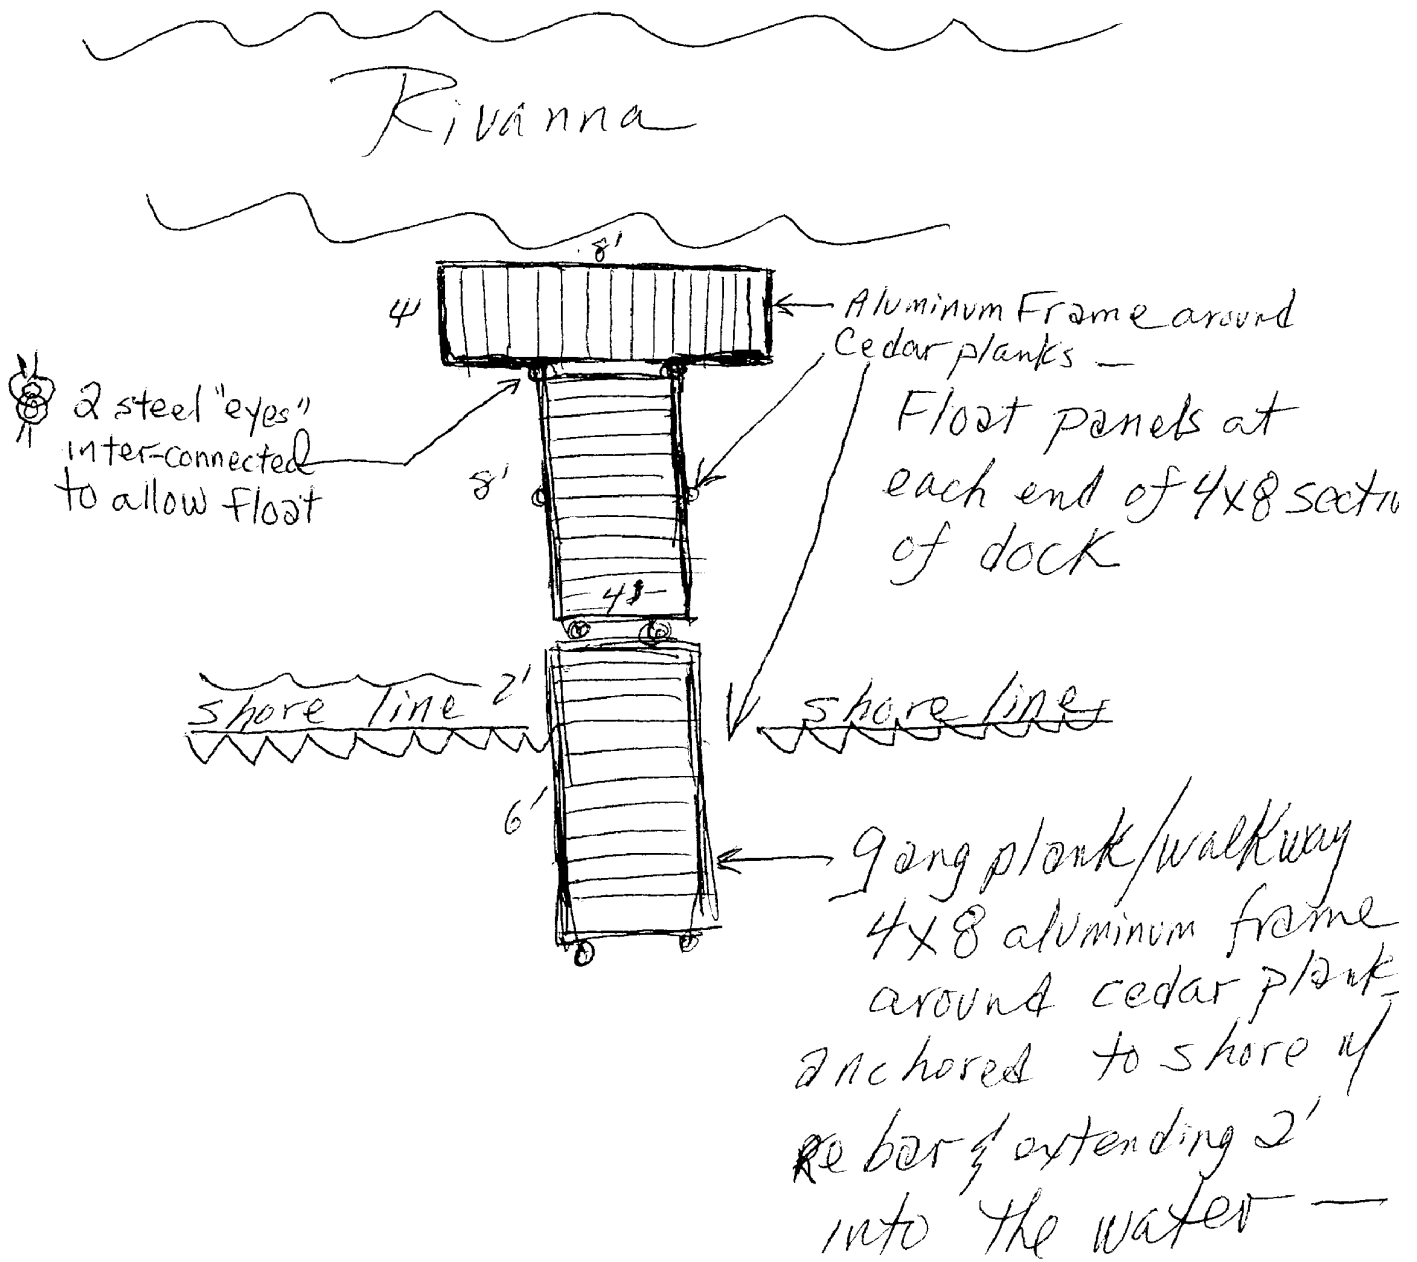 Rivanna
8'
4'
Aluminum Frame around
Cedar planks —
Float panels at
each end of 4x8 sectio
of dock
2 steel "eyes"
inter-connected
to allow float
8'
4'
shore line 2'
shore line
6'
gang plank/walkway
4x8 aluminum frame
around cedar plank
anchored to shore w/
Rebar & extending 2'
into the water —